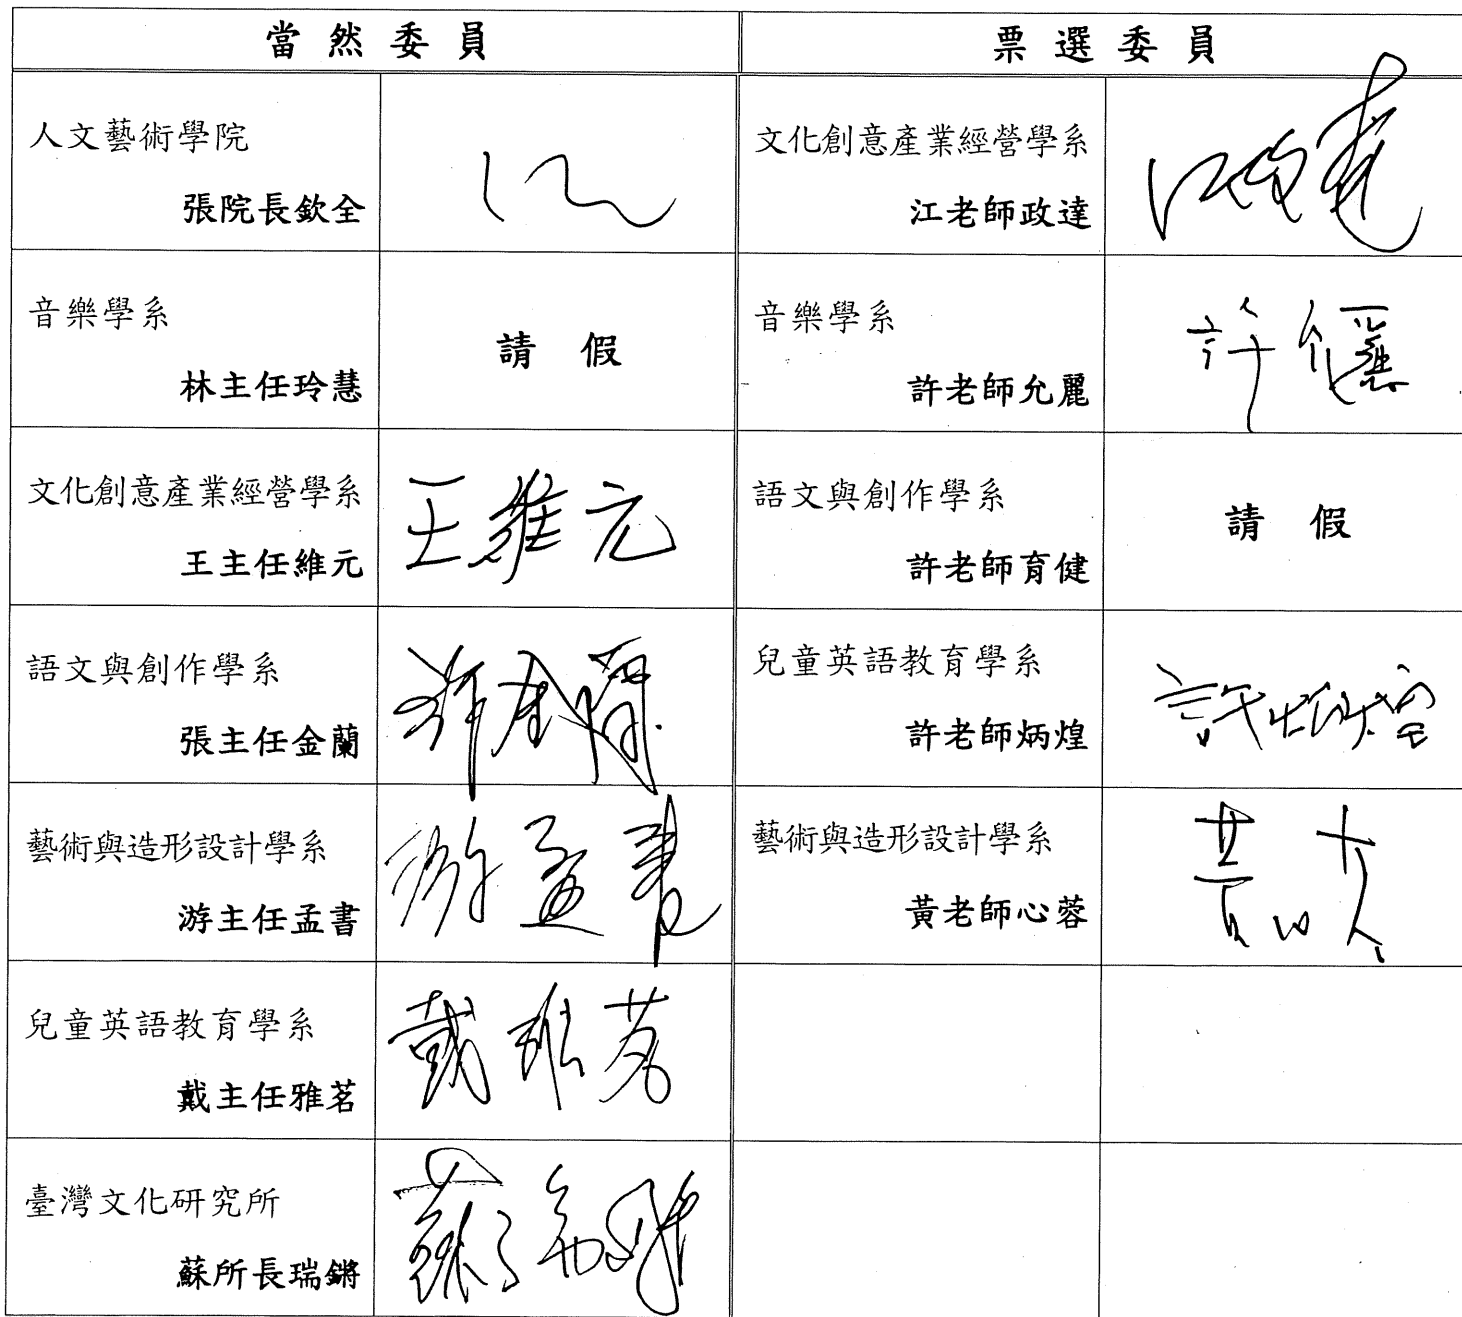 當然委員
票選委員
人文藝術學院
張院長欽全
文化創意產業經營學系
江老師政達
音樂學系
林主任玲慧
請假
音樂學系
許老師允麗
文化創意產業經營學系
王主任維元
王維元
語文與創作學系
許老師育健
請假
語文與創作學系
張主任金蘭
兒童英語教育學系
許老師炳煌
許炳煌
藝術與造形設計學系
游主任孟書
游孟書
藝術與造形設計學系
黃老師心蓉
兒童英語教育學系
戴主任雅茗
戴雅茗
臺灣文化研究所
蘇所長瑞鏘